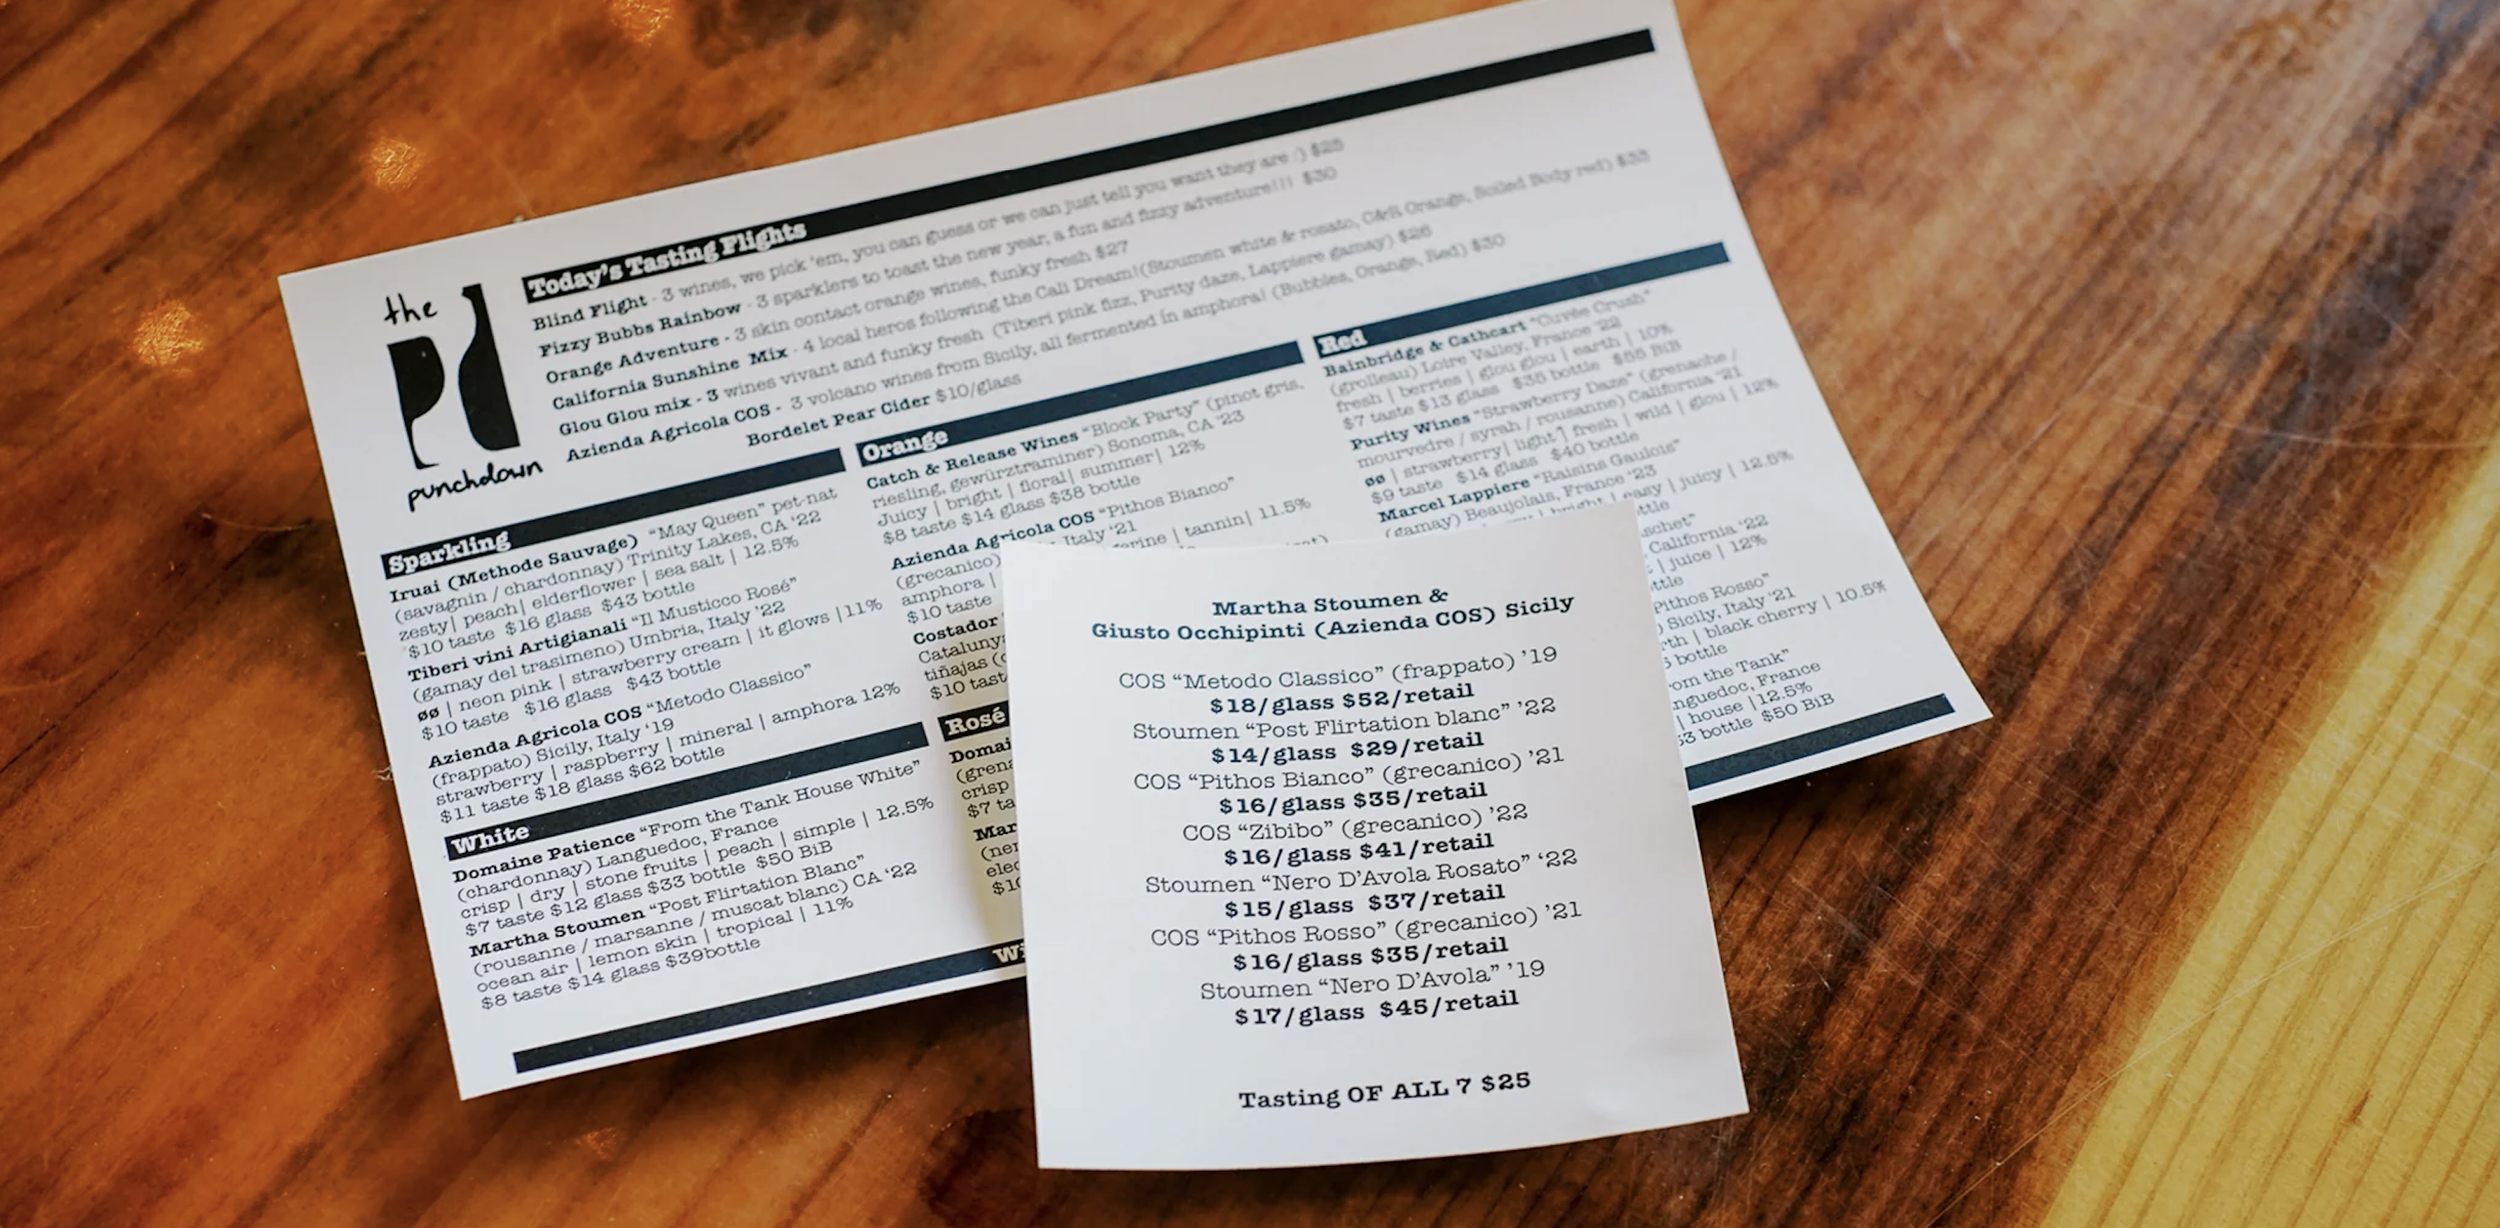 the
punchdown
Today's Tasting Flights
Blind Flight - 3 wines, we pick 'em, you can guess or we can just tell you want they are :) $25
Fizzy Bubbs Rainbow - 3 sparklers to toast the new year, a fun and fizzy adventure!!! $30
Orange Adventure - 3 skin contact orange wines, funky fresh $27
California Sunshine Mix - 4 local heros following the Cali Dream!(Stoumen white & rosato, C&R Orange, Soiled Body red) $33
Glou Glou mix - 3 wines vivant and funky fresh (Tiberi pink fizz, Purity daze, Lappiere gamay) $26
Azienda Agricola COS - 3 volcano wines from Sicily, all fermented in amphora! (Bubbles, Orange, Red) $30
Bordelet Pear Cider $10/glass
Sparkling
Iruai (Methode Sauvage) "May Queen" pet-nat
(savagnin / chardonnay) Trinity Lakes, CA '22
zesty| peach| elderflower | sea salt | 12.5%
$10 taste $16 glass $43 bottle
Tiberi vini Artigianali "Il Musticco Rosé"
(gamay del trasimeno) Umbria, Italy '22
øø | neon pink | strawberry cream | it glows |11%
$10 taste $16 glass $43 bottle
Azienda Agricola COS "Metodo Classico"
(frappato) Sicily, Italy '19
strawberry | raspberry | mineral | amphora 12%
$11 taste $18 glass $62 bottle
White
Domaine Patience "From the Tank House White"
(chardonnay) Languedoc, France
crisp | dry | stone fruits | peach | simple | 12.5%
$7 taste $12 glass $33 bottle $50 BiB
Martha Stoumen "Post Flirtation Blanc"
(rousanne / marsanne / muscat blanc) CA '22
ocean air | lemon skin | tropical | 11%
$8 taste $14 glass $39bottle
Orange
Catch & Release Wines "Block Party" (pinot gris,
riesling, gewürztraminer) Sonoma, CA '23
Juicy | bright | floral| summer| 12%
$8 taste $14 glass $38 bottle
Azienda Agricola COS "Pithos Bianco"
(grecanico) Italy '21
amphora | tannin| 11.5%
$10 taste
Costador
tiñajas
Rosé
crisp
Red
Bainbridge & Cathcart "Cuvée Crush"
(grolleau) Loire Valley, France '22
fresh | berries | glou glou | earth | 10%
$7 taste $13 glass $35 bottle $55 BiB
Purity Wines "Strawberry Daze" (grenache /
mourvedre / syrah / rousanne) California '21
øø | strawberry| light | fresh | wild | glou | 12%
$9 taste $14 glass $40 bottle
Marcel Lappiere "Raisins Gaulois"
(gamay) Beaujolais, France '23
bright | easy | juicy | 12.5%
California '22
| juice | 12%
Pithos Rosso"
Sicily, Italy '21
| black cherry | 10.5%
bottle
the Tank"
France
| house |12.5%
bottle $50 BiB
Martha Stoumen &
Giusto Occhipinti (Azienda COS) Sicily
COS "Metodo Classico" (frappato) '19
$18/glass $52/retail
Stoumen "Post Flirtation blanc" '22
$14/glass $29/retail
COS "Pithos Bianco" (grecanico) '21
$16/glass $35/retail
COS "Zibibo" (grecanico) '22
$16/glass $41/retail
Stoumen "Nero D'Avola Rosato" '22
$15/glass $37/retail
COS "Pithos Rosso" (grecanico) '21
$16/glass $35/retail
Stoumen "Nero D'Avola" '19
$17/glass $45/retail
Tasting OF ALL 7 $25